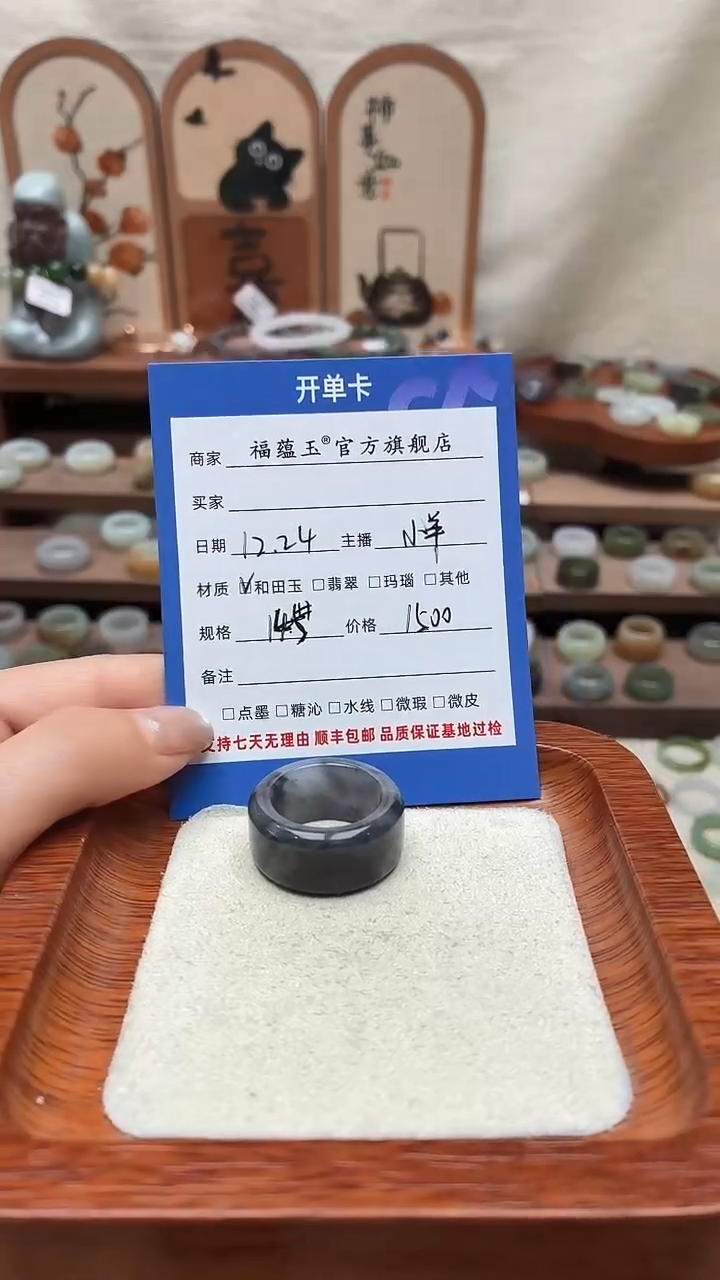 喜
开单卡
商家 福蕴玉®官方旗舰店
买家
日期 12.24 主播 N羊
材质 ☑和田玉 □翡翠 □玛瑙 □其他
规格 价格 1500
备注
□点墨 □糖沁 □水线 □微瑕 □微皮
支持七天无理由 顺丰包邮 品质保证基地过检